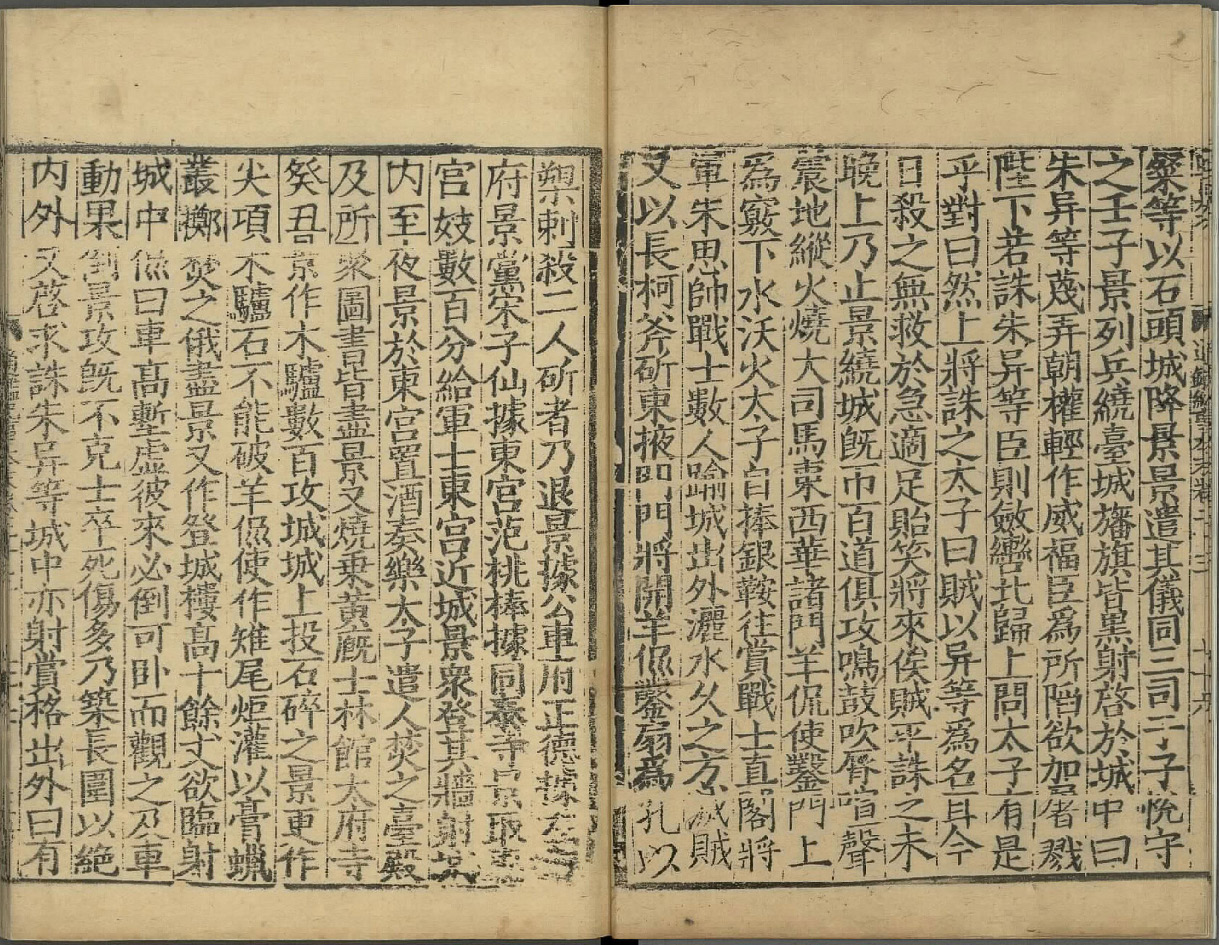 粲等以石頭城降景景遣其儀同三司于子悅守
之壬子景列兵繞臺城旛旗皆黑射啓於城中曰
朱异等蔑弄朝權輕作威福臣爲所陷欲加屠戮
陛下若誅朱异等臣則斂轡北歸上問太子有是
乎對曰然上將誅之太子曰賊以异等爲名耳今
日殺之無救於急適足貽笑將來俟賊平誅之未
晚上乃止景繞城旣帀百道俱攻鳴鼓吹脣喧聲
震地縱火燒大司馬東西華諸門羊侃使鑿門上
爲竅下水沃火太子自捧銀鞍往賞戰士直閤將
軍朱思帥戰士數人踰城出外灑水久之方滅賊
又以長柯斧斫東掖門門將開羊侃鑿扇爲孔以
槊刺殺二人斫者乃退景據公車府正德據左
府景黨宋子仙據東宮范桃棒據同泰寺景取東
宮妓數百分給軍士東宮近城景衆登其牆射
内至夜景於東宮置酒奏樂太子遣人焚之臺殿
及所聚圖書皆盡景又燒乗黃廐士林館太府寺
癸丑景作木驢數百攻城城上投石碎之景更作
尖項木驢石不能破羊侃使作雉尾炬灌以膏蠟
叢擲焚之俄盡景又作登城樓高十餘丈欲臨射
城中侃曰車高塹虛彼來必倒可卧而觀之及車
動果倒景攻旣不克士卒死傷多乃築長圍以絶
内外又啓求誅朱异等城中亦射賞格出外曰有